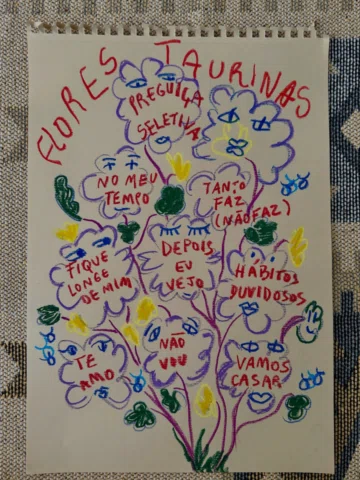 FLORES TAURINAS
PREGUIÇA
SELETIVA
NO MEU
TEMPO
TANTO
FAZ
(NÃO FAZ)
DEPOIS
EU
VEJO
FIQUE
LONGE
DE MIM
HÁBITOS
DUVIDOSOS
TE
AMO
NÃO
VOU
VAMOS
CASAR